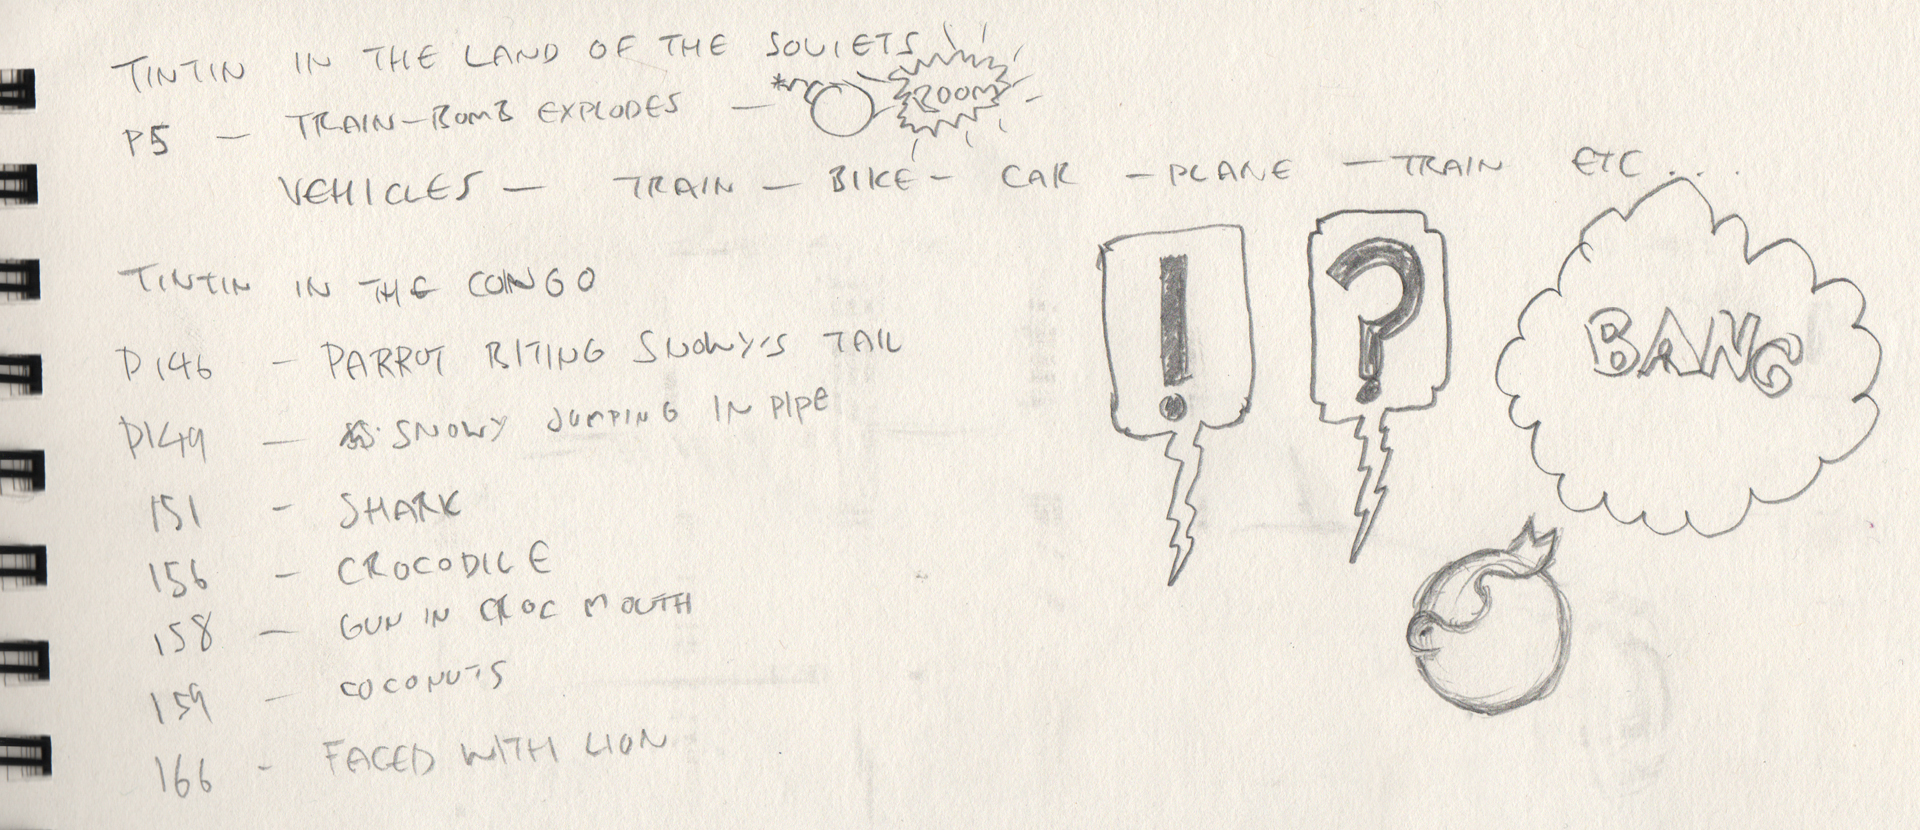 TINTIN IN THE LAND OF THE SOVIETS
P5 — TRAIN-BOMB EXPLODES — BOOM
VEHICLES — TRAIN — BIKE — CAR — PLANE — TRAIN ETC...
! ? BANG
TINTIN IN THE CONGO
P146 — PARROT BITING SNOWY'S TAIL
P149 — SNOWY JUMPING IN PIPE
151 - SHARK
156 - CROCODILE
158 — GUN IN CROC MOUTH
159 - COCONUTS
166 - FACED WITH LION